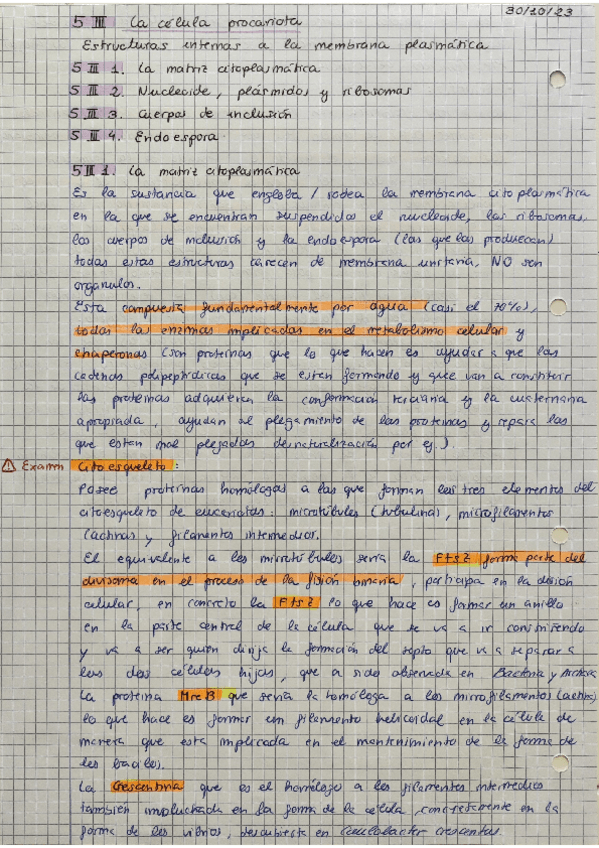 30/10/23
5 III La célula procariota
Estructuras internas a la membrana plasmática
5 III 1. La matriz citoplasmática
5 III 2. Nucleoide, plásmidos y ribosomas
5 III 3. Cuerpos de inclusión
5 III 4. Endoespora.
5 III 1. La matriz citoplasmática
Es la sustancia que engloba / rodea la membrana citoplasmática
en la que se encuentran suspendidos el nucleoide, los ribosomas,
los cuerpos de inclusión y la endoespora (las que las producen)
todas estas estructuras carecen de membrana unitaria, NO son
organulos.
Esta compuesta fundamentalmente por agua (casi el 70%),
todas las enzimas implicadas en el metabolismo celular y
chaperonas (son proteínas que lo que hacen es ayudar a que las
cadenas polipeptídicas que se esten formando y que van a constituir
las proteínas adquieran la conformación terciaria y la cuaternaria
apropiada, ayudan al plegamiento de las proteinas y repara las
que esten mal plegadas desnaturalización por ej.).
⚠ Examen Citoesqueleto:
Posee proteínas homólogas a las que forman los tres elementos del
citoesqueleto de eucariotas: microtúbulos (tubulina), microfilamentos
(actina) y filamentos intermedios.
El equivalente a los microtúbulos sería la FtsZ forma parte del
divisoma en el proceso de la fisión binaria, participa en la división
celular, en concreto la FtsZ lo que hace es formar un anillo
en la parte central de la célula que se va a ir constriñendo
y va a ser quién dirija la formación del septo que va a separar a
las dos células hijas, que a sido observada en Bacteria y Archaea
La proteina MreB que sería la homóloga a los microfilamentos (actina)
lo que hace es formar un filamento helicoidal en la célula de
manera que esta implicada en el mantenimiento de la forma de
los bacilos.
La Crescentina que es el homólogo a los filamentos intermedios
también involuchada en la forma de la célula, concretamente en la
forma de los vibrios, descubierta en Caulobacter crescentus.